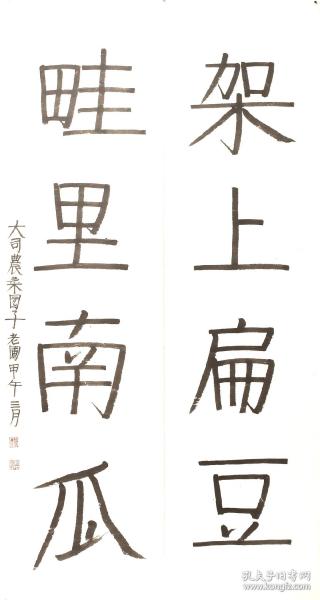 架上扁豆
畦里南瓜
大司農 子老圃甲午三月
孔夫子旧书网